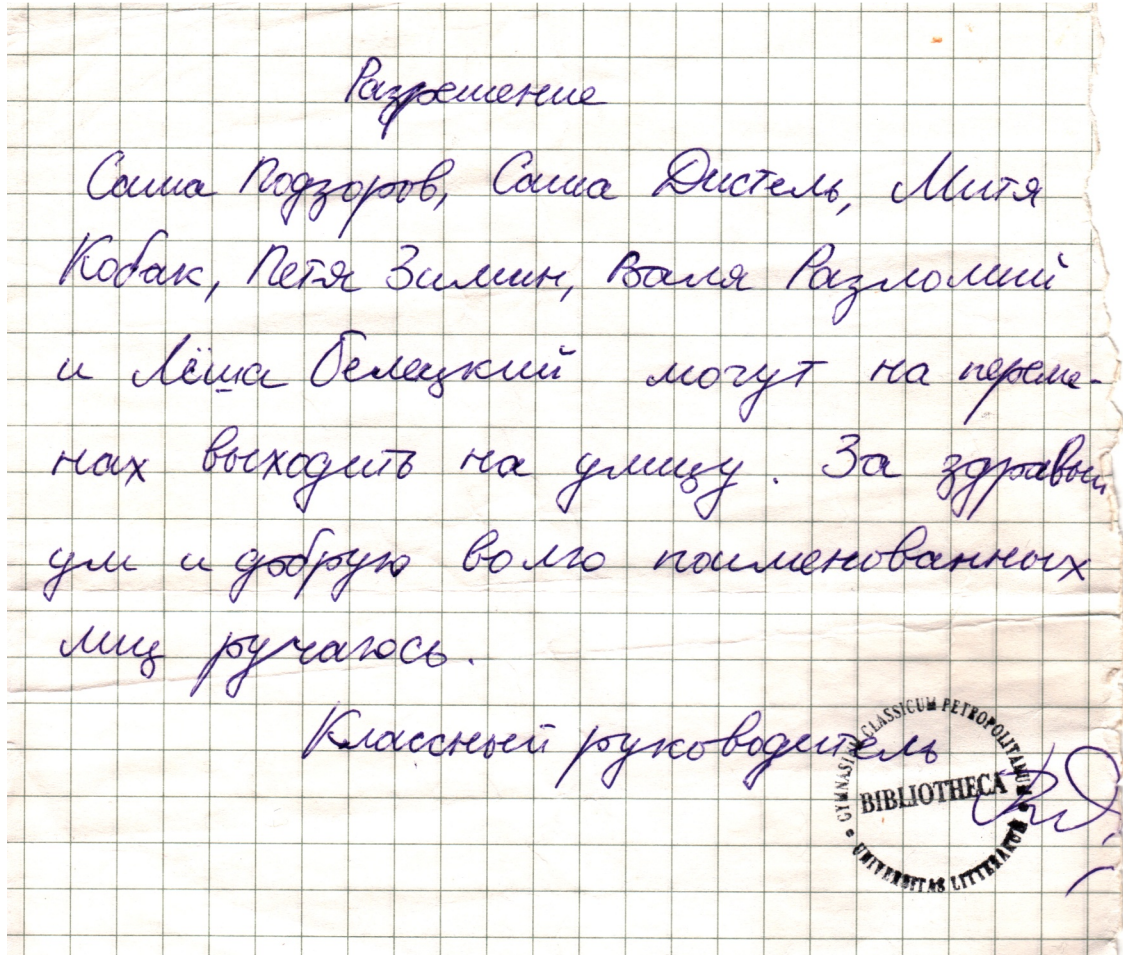 Разрешение
Саша Подзоров, Саша Дистель, Митя
Кобак, Петя Зимин, Валя Разломий
и Лёша Белецкий могут на переме-
нах выходить на улицу. За здравый
ум и добрую волю поименованных
лиц ручаюсь.
Классный руководитель
GYMNASIUM CLASSICUM PETROPOLITANUM
BIBLIOTHECA
UNIVERSITAS LITTERARUM